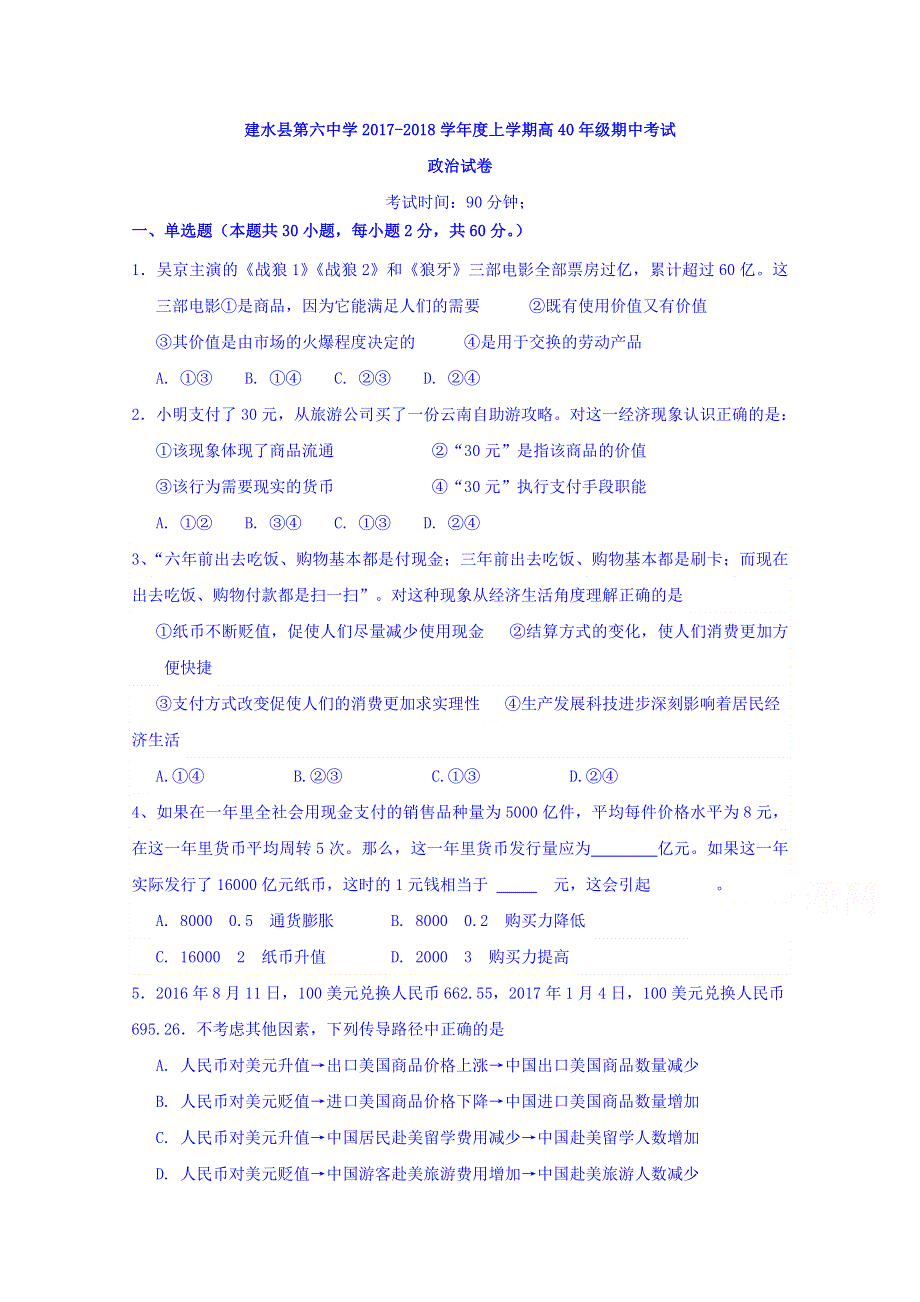 建水县第六中学2017-2018学年度上学期高40年级期中考试
政治试卷
考试时间：90分钟；
一、单选题（本题共30小题，每小题2分，共60分。）
1．吴京主演的《战狼1》《战狼2》和《狼牙》三部电影全部票房过亿，累计超过60亿。这
三部电影①是商品，因为它能满足人们的需要 ②既有使用价值又有价值
③其价值是由市场的火爆程度决定的 ④是用于交换的劳动产品
A. ①③ B. ①④ C. ②③ D. ②④
2．小明支付了30元，从旅游公司买了一份云南自助游攻略。对这一经济现象认识正确的是：
①该现象体现了商品流通 ②“30元”是指该商品的价值
③该行为需要现实的货币 ④“30元”执行支付手段职能
A. ①② B. ③④ C. ①③ D. ②④
3、“六年前出去吃饭、购物基本都是付现金；三年前出去吃饭、购物基本都是刷卡；而现在
出去吃饭、购物付款都是扫一扫”。对这种现象从经济生活角度理解正确的是
①纸币不断贬值，促使人们尽量减少使用现金 ②结算方式的变化，使人们消费更加方
便快捷
③支付方式改变促使人们的消费更加求实理性 ④生产发展科技进步深刻影响着居民经
济生活
A.①④ B.②③ C.①③ D.②④
4、如果在一年里全社会用现金支付的销售品种量为5000亿件，平均每件价格水平为8元，
在这一年里货币平均周转5次。那么，这一年里货币发行量应为________亿元。如果这一年
实际发行了16000亿元纸币，这时的1元钱相当于 _____ 元，这会引起 。
A. 8000 0.5 通货膨胀 B. 8000 0.2 购买力降低
C. 16000 2 纸币升值 D. 2000 3 购买力提高
5．2016年8月11日，100美元兑换人民币662.55，2017年1月4日，100美元兑换人民币
695.26．不考虑其他因素，下列传导路径中正确的是
A. 人民币对美元升值→出口美国商品价格上涨→中国出口美国商品数量减少
B. 人民币对美元贬值→进口美国商品价格下降→中国进口美国商品数量增加
C. 人民币对美元升值→中国居民赴美留学费用减少→中国赴美留学人数增加
D. 人民币对美元贬值→中国游客赴美旅游费用增加→中国赴美旅游人数减少